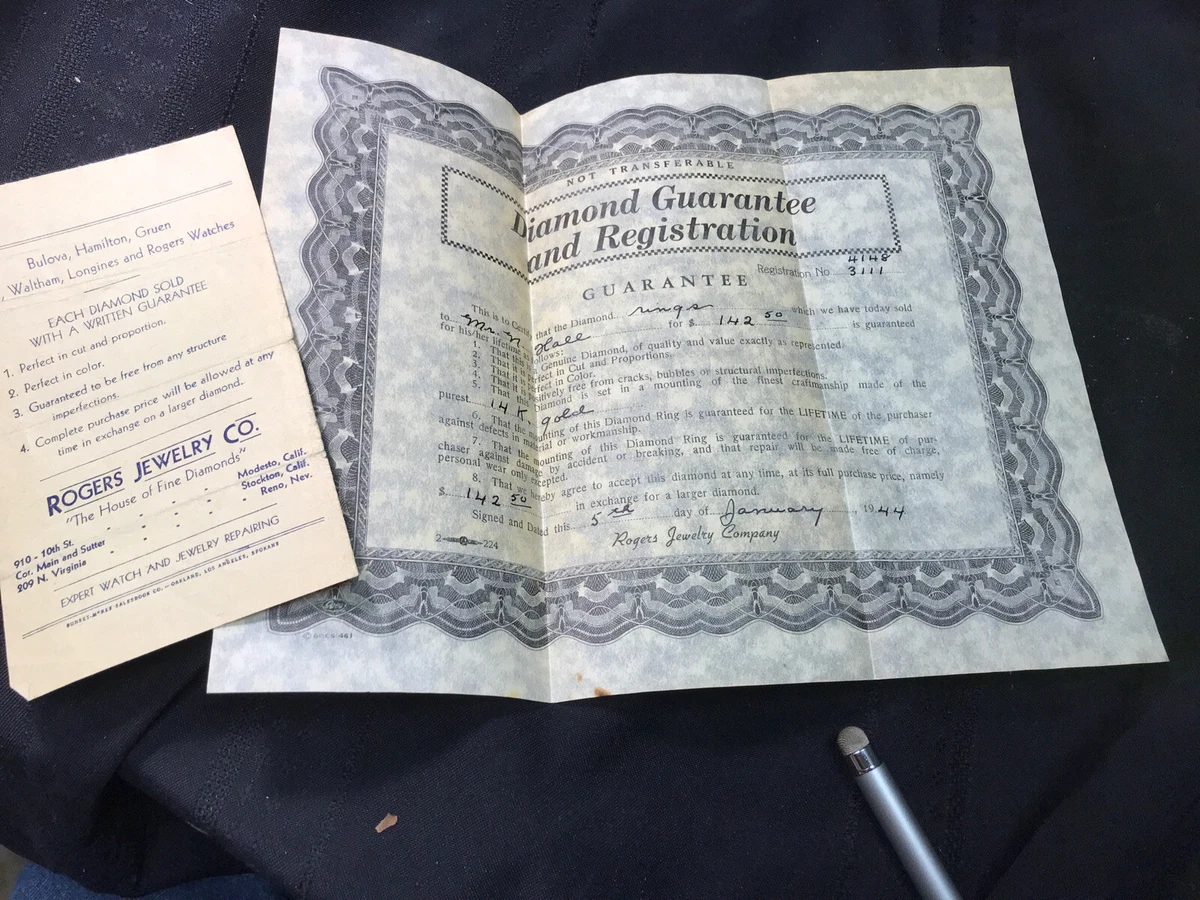 Bulova, Hamilton, Gruen
, Waltham, Longines and Rogers Watches
EACH DIAMOND SOLD
WITH A WRITTEN GUARANTEE
1. Perfect in cut and proportion.
2. Perfect in color.
3. Guaranteed to be free from any structure
imperfections.
4. Complete purchase price will be allowed at any
time in exchange on a larger diamond.
ROGERS JEWELRY CO.
"The House of Fine Diamonds"
910 - 10th St. Modesto, Calif.
Cor. Main and Sutter Stockton, Calif.
209 N. Virginia Reno, Nev.
EXPERT WATCH AND JEWELRY REPAIRING
SUNSET-McKEE SALESBOOK CO.—OAKLAND, LOS ANGELES, SPOKANE
NOT TRANSFERABLE
Diamond Guarantee
and Registration
Registration No 4148
3111
GUARANTEE
This is to Certi that the Diamond rings which we have today sold
to Mr. Hall for $ 142 50 is guaranteed
for his/her lifetime as follows:
1. That this is a Genuine Diamond, of quality and value exactly as represented.
2. That it is Perfect in Cut and Proportions.
3. That it is Perfect in Color.
4. That it is positively free from cracks, bubbles or structural imperfections.
5. That this Diamond is set in a mounting of the finest craftmanship made of the
purest 14 K. gold
6. That the mounting of this Diamond Ring is guaranteed for the LIFETIME of the purchaser
against defects in material or workmanship.
7. That the mounting of this Diamond Ring is guaranteed for the LIFETIME of pur-
chaser against damage by accident or breaking, and that repair will be made free of charge,
personal wear only excepted.
8. That we hereby agree to accept this diamond at any time, at its full purchase price, namely
$ 142 50 in exchange for a larger diamond.
Signed and Dated this 5th day of January, 1944
2 224 Rogers Jewelry Company
© GOES 461